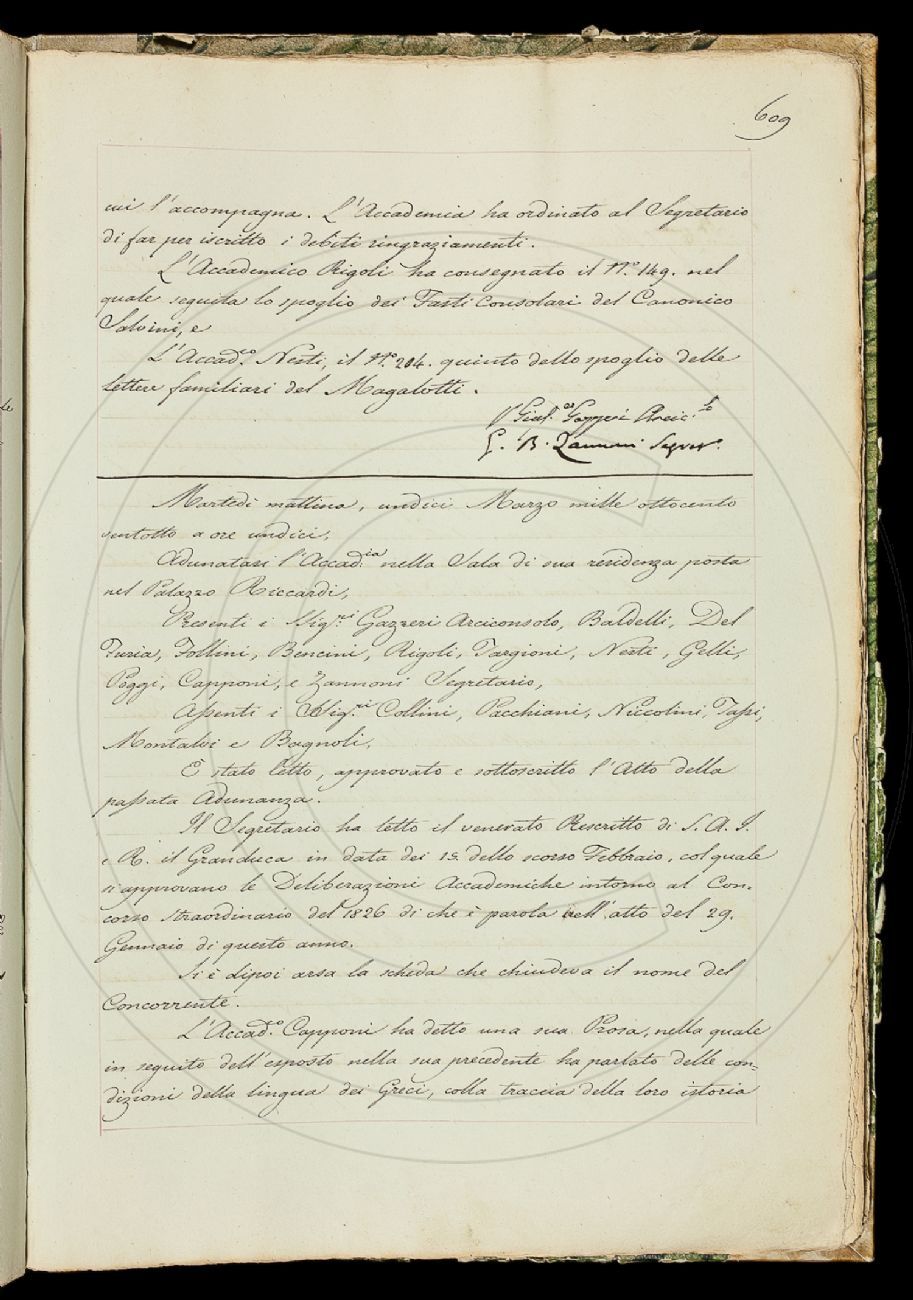 609
cui l'accompagna. L'Accademia ha ordinato al Segretario
di far per iscritto i debiti ringraziamenti.
L'Accademico Rigoli ha consegnato il N.º 149. nel
quale seguita lo spoglio dei Fasti Consolari del Canonico
Salvini, e
L'Accad.co Nesti, il N.º 204. quinto dello spoglio delle
Lettere familiari del Magalotti.
Gazzeri Arcic.lo
G. B. Zannoni Segret.
Martedì mattina, undici Marzo mille ottocento
ventotto a ore undici,
Adunatasi l'Accad.ia nella Sala di sua residenza posta
nel Palazzo Riccardi,
Presenti i Sig.ri Gazzeri Arciconsolo, Baldelli, Del
Furia, Follini, Bencini, Rigoli, Targioni, Nesti, Gelli,
Poggi, Capponi, e Zannoni Segretario,
Assenti i Sig.ri Collini, Pacchiani, Niccolini, Tassi,
Montalvi e Bagnoli,
È stato letto, approvato e sottoscritto l'Atto della
passata Adunanza.
Il Segretario ha letto il venerato Rescritto di S. A. I.
e R. il Granduca in data dei 15. dello scorso Febbraio, col quale
si approvano le Deliberazioni Accademiche intorno al Con-
corso straordinario del 1826 di che è parola nell'atto del 29.
Gennaio di questo anno.
Si è dipoi arsa la scheda che chiudeva il nome del
Concorrente.
L'Accad.co Capponi ha detto una sua Prosa, nella quale
in seguito dell'esposto nella sua precedente ha parlato delle con-
dizioni della lingua dei Greci, colla traccia della loro istoria